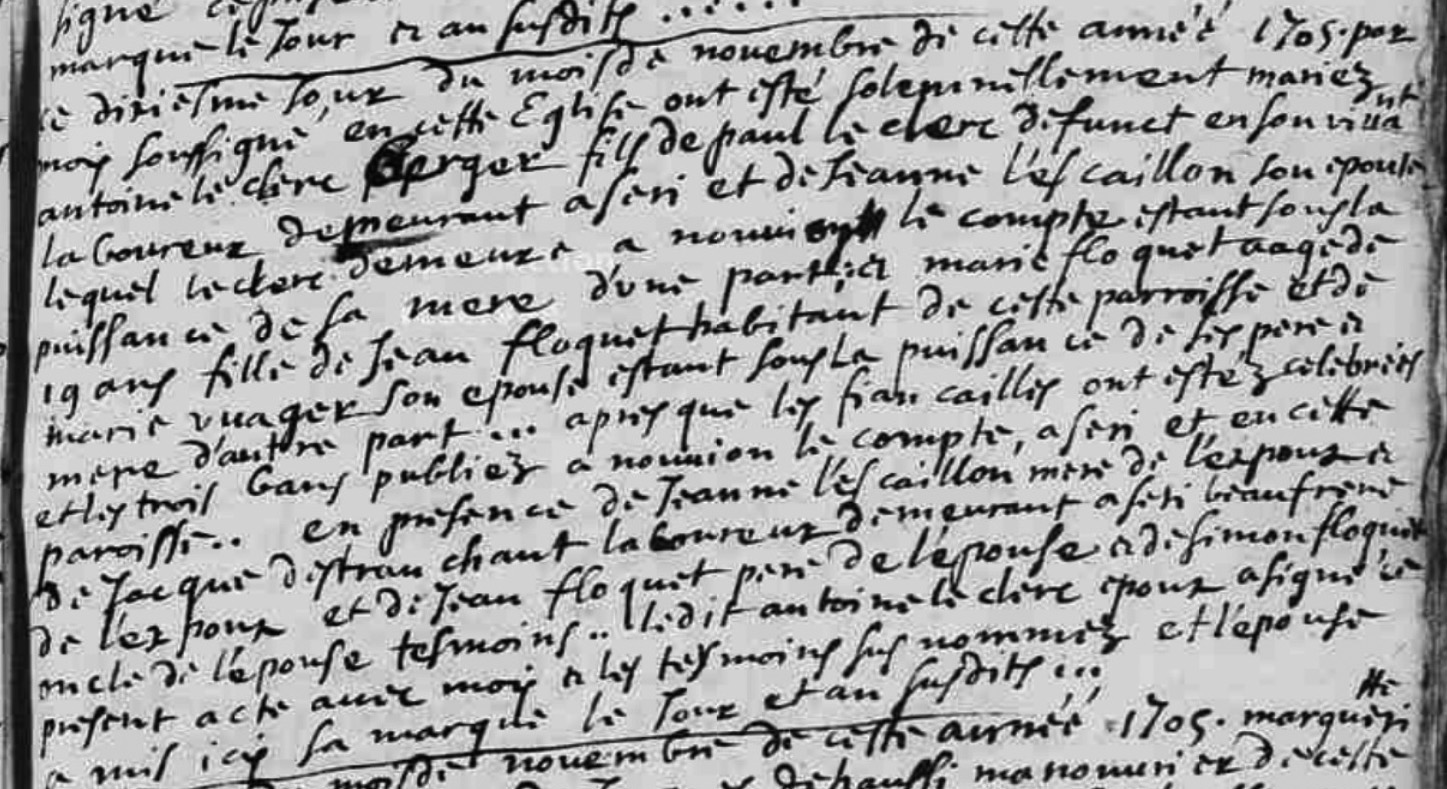 signé
marque le Jour et an susdits ......
Ce dixiesme Jour du mois de novembre de cette année 1705. par
moy soussigné en cette Eglise ont esté solemnellement mariez
antoine le clerc Berger fils de paul le clerc defunct en son viva
nt
laboureur demeurant a seri et de Jeanne l'escaillon son epouse
lequel le clerc demeure a nouvion le compte estant sous la
puissance de sa mere d'vne part, et marie floquet aagé de
19 ans fille de Jean floquet habitant de cette parroisse et de
marie vuager son epouse estant sous la puissance de ses pere et
mere d'autre part ... apres que les fiancailles ont estez celebrées
et les trois bans publiez a nouvion le compte, a seri et en cette
paroisse .. en presence de Jeanne l'escaillon mere de l'expoux et
de Jacque destranchant laboureur demeurant a seri beaufrere
de l'expoux et de Jean floquet pere de l'epouse et de simon floquet
oncle de l'epouse tesmoins .. ledit antoine le clerc epoux a signé ce
present acte avec moy et les tesmoins sus nommez et l'epouse
a mis icy sa marque le Jour et an susdits ...
mois de novembre de cette année 1705. marqueri
tte
manouurier de cette